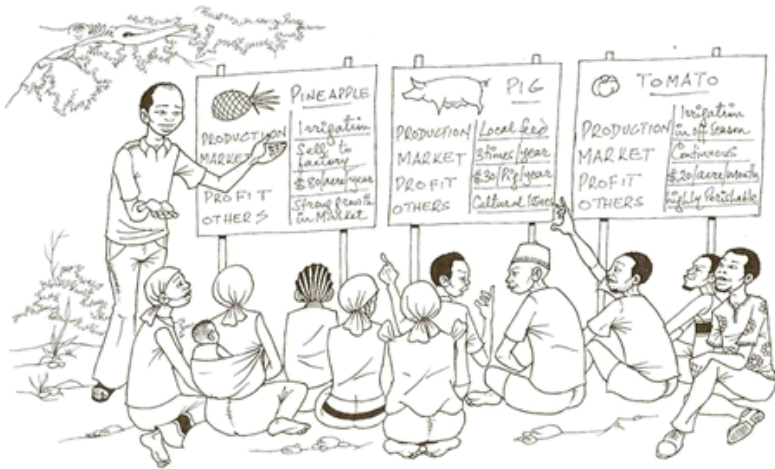 PINEAPPLE
PRODUCTION Irrigation
MARKET Sell to factory
PROFIT $80/acre/year
OTHERS Strong growth in Market
PIG
PRODUCTION Local feed
MARKET 3times/year
PROFIT $30/Pig/year
OTHERS Cultural Issues
TOMATO
PRODUCTION Irrigation in off season
MARKET Continuous
PROFIT $20/acre/month
OTHERS highly Perishable